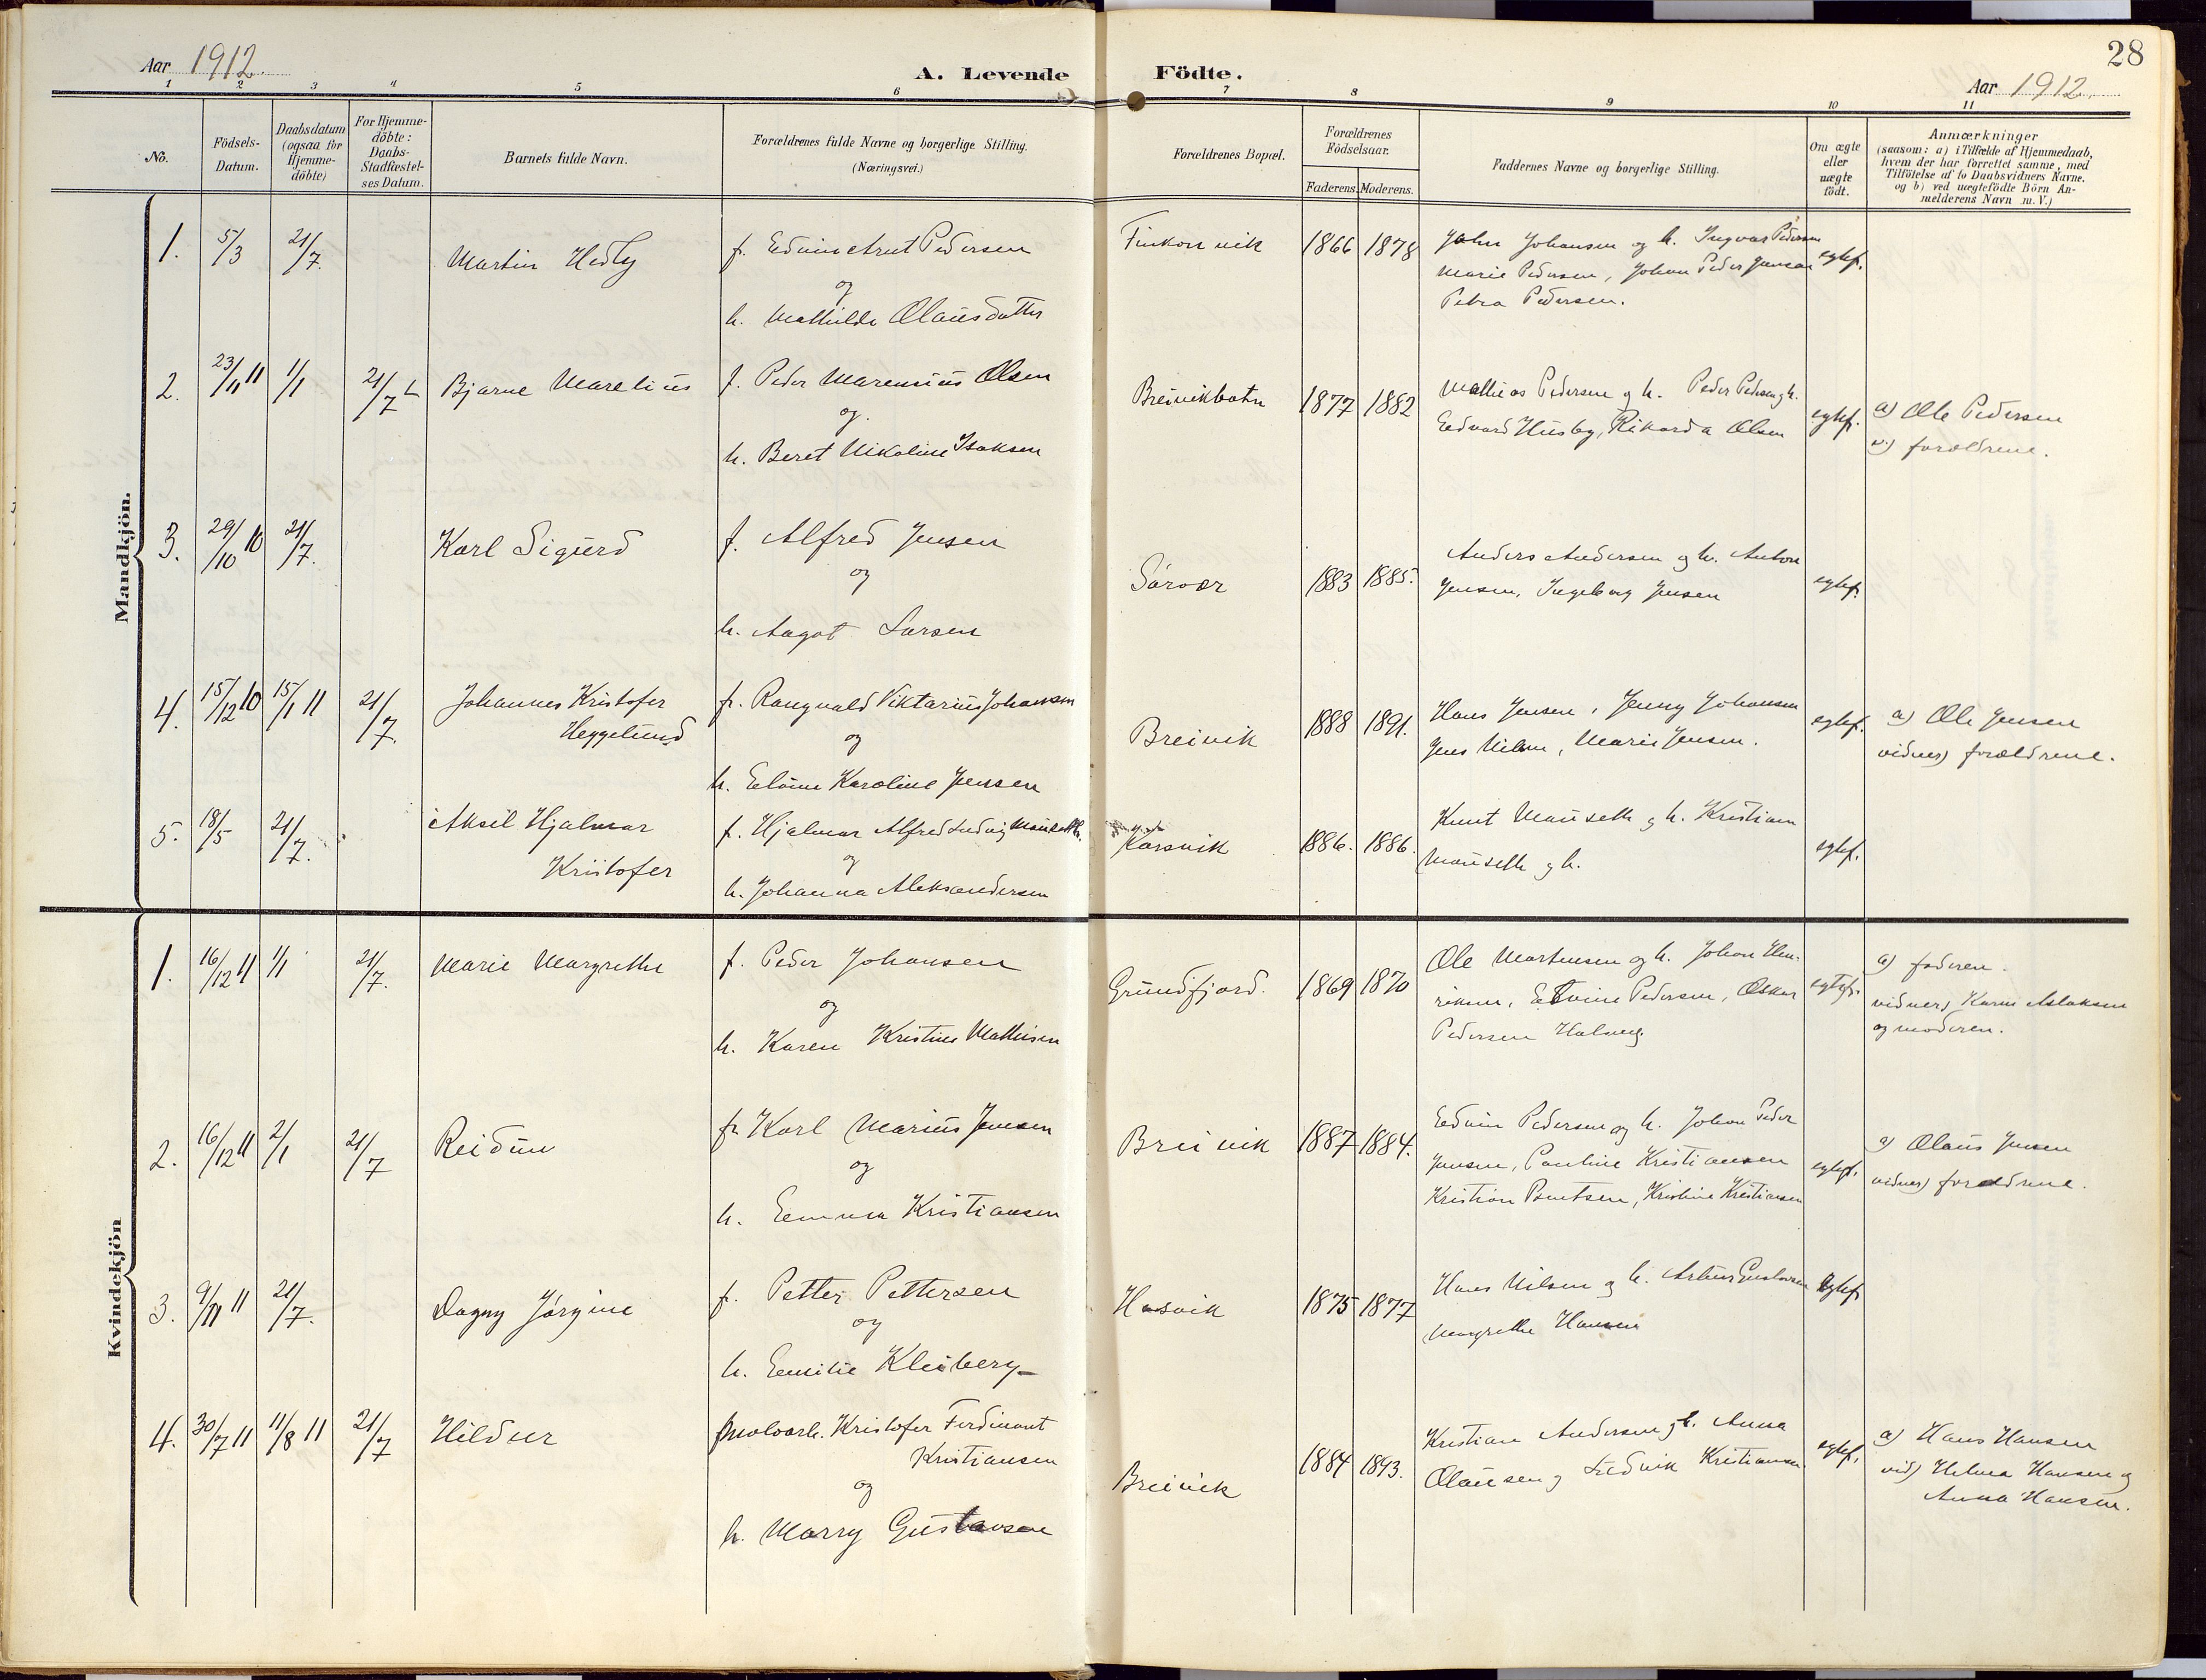 28
Aar 1912.
A. Levende Födte.
Aar 1912.
1 2 3 4 5 6 7 8 9 10 11
No.
Födsels-
Datum.
Daabsdatum
(ogsaa for
Hjemme-
döbte)
For Hjemme-
döbte:
Daabs-
Stadfæstel-
ses Datum.
Barnets fulde Navn.
Forældrenes fulde Navne og borgerlige Stilling.
(Næringsvei.)
Forældrenes Bopæl.
Forældrenes
Födselsaar.
Faderens. Moderens.
Faddernes Navne og borgerlige Stilling.
Om ægte
eller
uægte
födt.
Anmærkninger
(saasom: a) i Tilfælde af Hjemmedaab,
hvem der har forrettet samme, med
Tilföielse af to Daabsvidners Navne.
og b) ved uægtefödte Börn An-
melderens Navn m. V.)
Mandkjön.
1. 5/3 21/7. Martin Hedly
f. Edvin Arnt Pedersen
og
h. Mathilde Olausdatter
Finkonvik 1866 1878
John Johansen og h. Ingvar Pedersen
Marie Pedersen, Johan Peder Jensen
Petra Pedersen.
egtef.
2. 23/11 11 1/1 21/7 Bjarne Marelius
f. Peder Marensius Olsen
og
h. Beret Nikoline Isaksen
Breivikbotn 1877 1882
Mathias Pedersen og h. Peder Pedersen og h.
Edvard Husby, Rikarda Olsen
egtef.
a) Ole Pedersen
v.) forældrene.
3. 29/10 10 21/7. Karl Sigurd
f. Alfred Jensen
og
h. Aagot Larsen
Sörvær 1883 1885.
Anders Andersen og h. Anton
Jensen, Ingeborg Jensen
egtef.
4. 15/12 10 15/1 11 21/7. Johannes Kristofer
Heggelund
f. Rangvald Viktarius Johansen
og
h. Elvine Karoline Jensen
Breivik 1888 1891.
Hans Jensen, Jenny Johansen
Jens Nilsen, Marie Jensen.
egtef.
a) Ole Jensen
vidner) forældrene.
5. 18/5 21/7. Aksel Hjalmar
Kristofer
f. Hjalmar Alfred Ludvig Mauseth.
og
h. Johanna Aleksandersen
Karsvik 1886. 1886.
Knut Mauseth og h. Kristian
Mauseth og h.
egtef.
Kvindekjön
1. 16/12 11 1/1 21/7. Marie Margrethe
f. Peder Johansen
og
h. Karen Kristine Mathisen
Grundfjord. 1869 1870
Ole Martensen og h. Johan Hen-
riksen, Edvine Pedersen, Oskar
Pedersen
egtef.
a) faderen.
vidner) Karen Aslaksen
og moderen.
2. 16/12 11 2/1 21/7 Reidun
f. Karl Marius Jensen
og
h. Emma Kristiansen
Breivik 1887 1884.
Edvin Pedersen og h. Johan Peder
Jensen, Pauline Kristiansen
Kristian Bentsen, Kristine Kristiansen
egtef.
a) Olaus Jensen
vidner) forældrene.
3. 9/11 11 21/7. Dagny Jörgine
f. Petter Pettersen
og
h. Emilie Kleiberg
Hasvik 1875 1877
Hans Nilsen og h. Artur Gustavsen
Margrethe Hansen
egtef.
4. 30/7 11 11/8 11 21/7 Hildur
Kristofer Ferdinant
Kristiansen
og
h. Marry Gustavsen
Breivik 1884 1893.
Kristian Andersen og h. Anna
Olausen og Fredrik Kristiansen
egtef.
a) Hans Hansen
vid) Helma Hansen og
Anna Hansen.